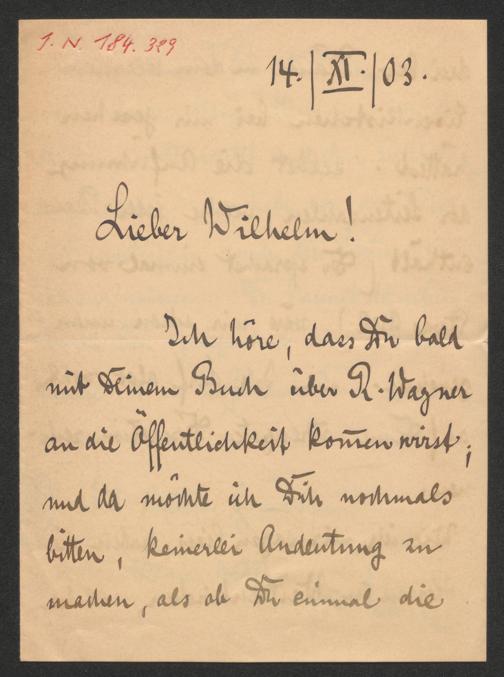 I. N. 184.329
14.|XI.|03.
Lieber Wilhelm!
Ich höre, dass Du bald
mit Deinem Buch über R. Wagner
an die Öffentlichkeit kom̄en wirst;
und da möchte ich Dich nochmals
bitten, keinerlei Andeutung zu
machen, als ob Du einmal die